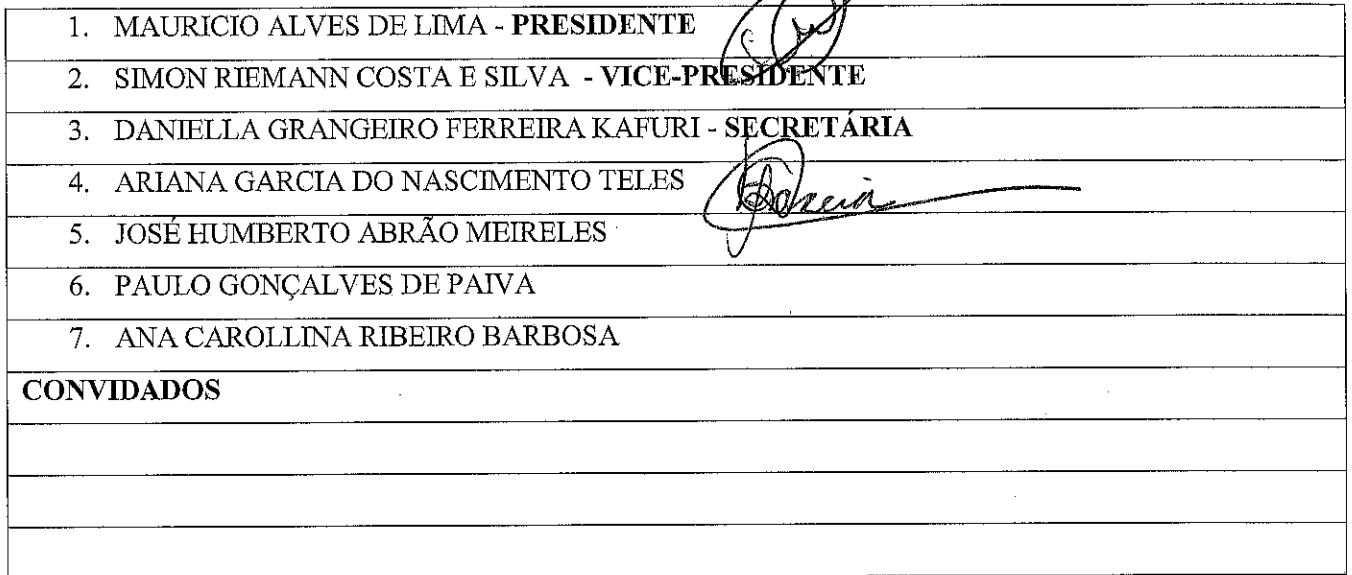 1. MAURICIO ALVES DE LIMA - PRESIDENTE
2. SIMON RIEMANN COSTA E SILVA - VICE-PRESIDENTE
3. DANIELLA GRANGEIRO FERREIRA KAFURI - SECRETÁRIA
4. ARIANA GARCIA DO NASCIMENTO TELES
5. JOSÉ HUMBERTO ABRÃO MEIRELES
6. PAULO GONÇALVES DE PAIVA
7. ANA CAROLLINA RIBEIRO BARBOSA
CONVIDADOS